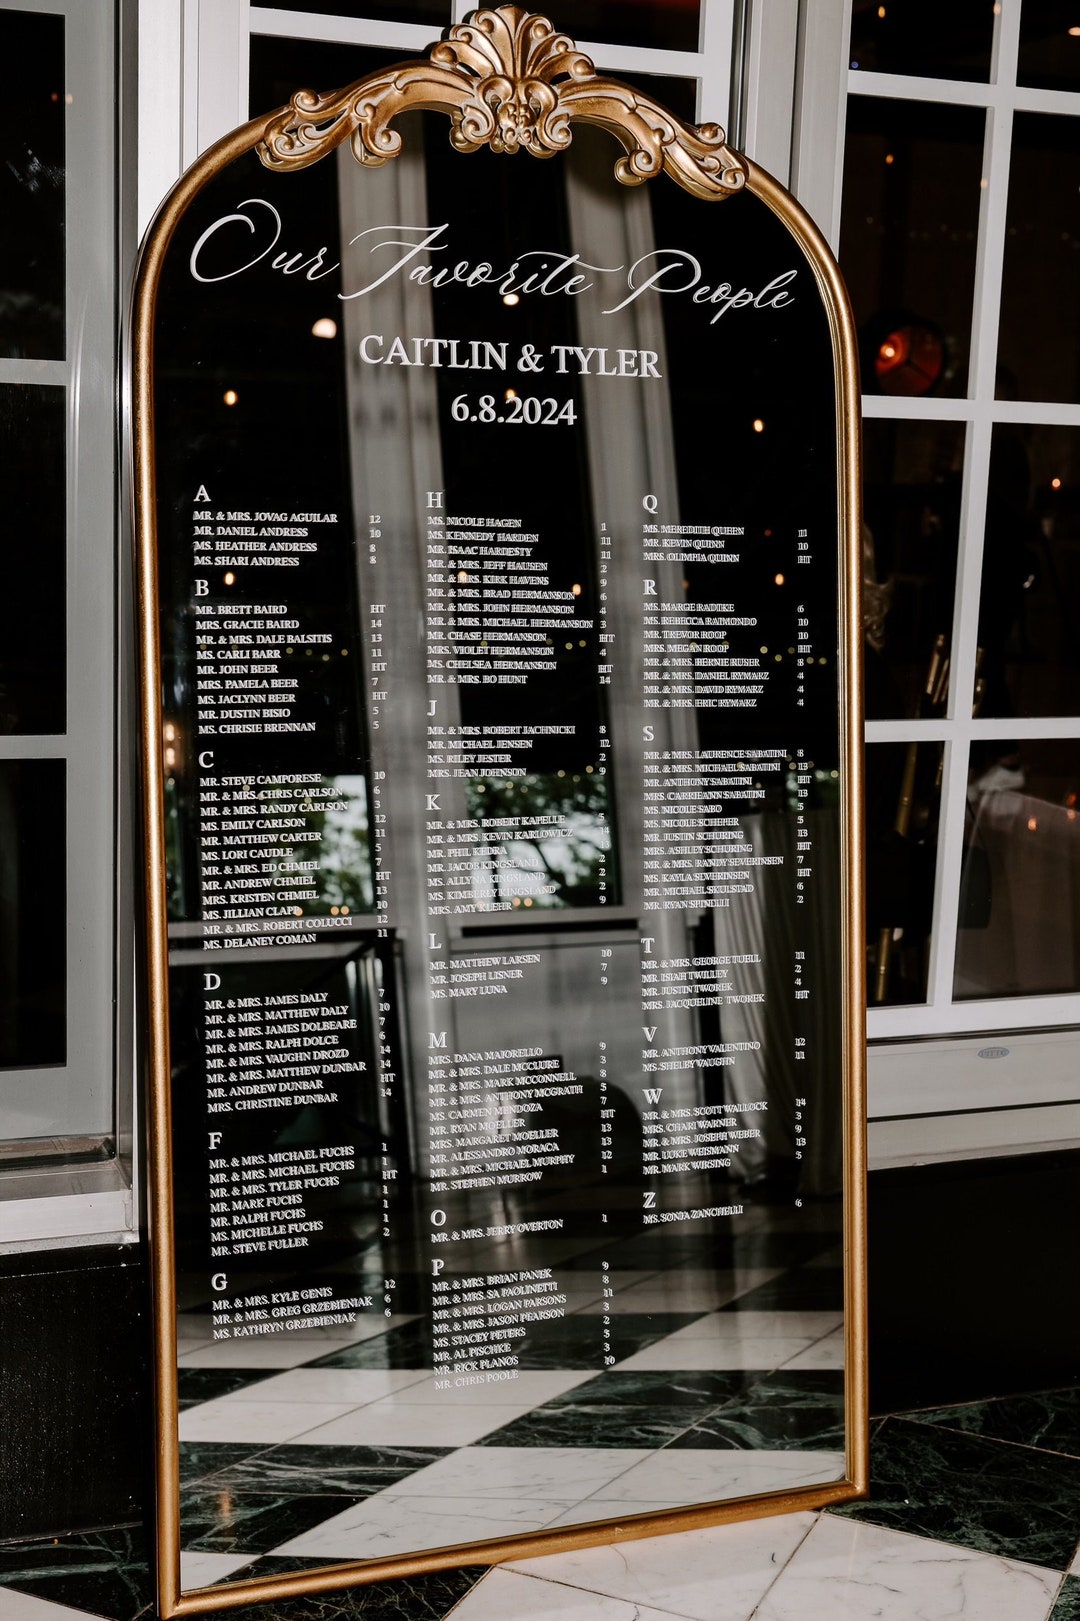 Our Favorite People
CAITLIN & TYLER
6.8.2024
A
MR. & MRS. JOVAG AGUILAR 12
MR. DANIEL ANDRESS 10
MS. HEATHER ANDRESS 8
MS. SHARI ANDRESS 8
B
MR. BRETT BAIRD HT
MRS. GRACIE BAIRD 14
MR. & MRS. DALE BALSITIS 13
MS. CARLI BARR 11
MR. JOHN BEER HT
MRS. PAMELA BEER 7
MS. JACLYNN BEER HT
MR. DUSTIN BISIO 5
MS. CHRISIE BRENNAN 5
C
MR. STEVE CAMPORESE 10
MR. & MRS. CHRIS CARLSON 6
MR. & MRS. RANDY CARLSON 3
MS. EMILY CARLSON 12
MR. MATTHEW CARTER 11
MS. LORI CAUDLE 5
MR. & MRS. ED CHMIEL 7
MR. ANDREW CHMIEL HT
MRS. KRISTEN CHMIEL 13
MS. JILLIAN CLAPP 10
MR. & MRS. ROBERT COLUCCI 12
MS. DELANEY COMAN 11
D
MR. & MRS. JAMES DALY 7
MR. & MRS. MATTHEW DALY 10
MR. & MRS. JAMES DOLBEARE 7
MR. & MRS. RALPH DOLCE 6
MR. & MRS. VAUGHN DROZD 14
MR. & MRS. MATTHEW DUNBAR 14
MR. ANDREW DUNBAR HT
MRS. CHRISTINE DUNBAR 14
F
MR. & MRS. MICHAEL FUCHS 1
MR. & MRS. MICHAEL FUCHS 1
MR. & MRS. TYLER FUCHS HT
MR. MARK FUCHS 1
MR. RALPH FUCHS 1
MS. MICHELLE FUCHS 1
MR. STEVE FULLER 2
G
MR. & MRS. KYLE GENIS 12
MR. & MRS. GREG GRZEBIENIAK 6
MS. KATHRYN GRZEBIENIAK 6
H
MS. NICOLE HAGEN 1
MS. KENNEDY HARDEN 11
MR. ISAAC HARDESTY 11
MR. & MRS. JEFF HAUSEN 2
MR. & MRS. KIRK HAVENS 9
MR. & MRS. BRAD HERMANSON 6
MR. & MRS. JOHN HERMANSON 4
MR. & MRS. MICHAEL HERMANSON 3
MR. CHASE HERMANSON HT
MRS. VIOLET HERMANSON 4
MS. CHELSEA HERMANSON HT
MR. & MRS. BO HUNT 14
J
MR. & MRS. ROBERT JACHNICKI 8
MR. MICHAEL JENSEN 12
MS. RILEY JESTER 2
MRS. JEAN JOHNSON 9
K
MR. & MRS. ROBERT KAPELLE 5
MR. & MRS. KEVIN KARLOWICZ 14
MR. PHIL KEDRA 13
MR. JACOB KINGSLAND 2
MS. ALLYNA KINGSLAND 2
MS. KIMBERLY KINGSLAND 2
MRS. AMY KLEHR 9
L
MR. MATTHEW LARSEN 10
MR. JOSEPH LISNER 7
MS. MARY LUNA 9
M
MRS. DANA MAIORELLO 9
MR. & MRS. DALE MCCLURE 3
MR. & MRS. MARK MCCONNELL 8
MR. & MRS. ANTHONY MCGRATH 5
MS. CARMEN MENDOZA 7
MR. RYAN MOELLER HT
MRS. MARGARET MOELLER 13
MR. ALESSANDRO MORACA 13
MR. & MRS. MICHAEL MURPHY 12
MR. STEPHEN MURROW 1
O
MR. & MRS. JERRY OVERTON 1
P
MR. & MRS. BRIAN PANEK 9
MR. & MRS. SA PAOLINETTI 8
MR. & MRS. LOGAN PARSONS 11
MR. & MRS. JASON PEARSON 3
MS. STACEY PETERS 2
MR. AL PISCHKE 5
MR. RICK PLANOS 3
MR. CHRIS POOLE 10
Q
MS. MEREDITH QUEEN 11
MR. KEVIN QUINN 10
MRS. OLIMPIA QUINN HT
R
MS. MARGE RADIKE 6
MS. REBECCA RAIMONDO 10
MR. TREVOR ROOP 10
MRS. MEGAN ROOP HT
MR. & MRS. BERNIE RUSER 8
MR. & MRS. DANIEL RYMARZ 4
MR. & MRS. DAVID RYMARZ 4
MR. & MRS. ERIC RYMARZ 4
S
MR. & MRS. LAURENCE SABATINI 8
MR. & MRS. MICHAEL SABATINI 13
MR. ANTHONY SABATINI HT
MRS. CARRIEANN SABATINI 13
MS. NICOLE SABO 5
MS. NICOLE SCHEPER 5
MR. JUSTIN SCHURING 13
MRS. ASHLEY SCHURING HT
MR. & MRS. RANDY SEVERINSEN 7
MS. KAYLA SEVERINSEN HT
MR. MICHAEL SKULSTAD 6
MR. RYAN SPINELLI 2
T
MR. & MRS. GEORGE TUELL 11
MR. ISIAH TWILLEY 2
MR. JUSTIN TWOREK 4
MRS. JACQUELINE TWOREK HT
V
MR. ANTHONY VALENTINO 12
MS. SHELBY VAUGHN 11
W
MR. & MRS. SCOTT WALLOCK 14
MRS. CHARI WARNER 3
MR. & MRS. JOSEPH WEBER 9
MR. LUKE WEISMANN 13
MR. MARK WIBSING 5
Z
MS. SONIA ZANCHELLI 6